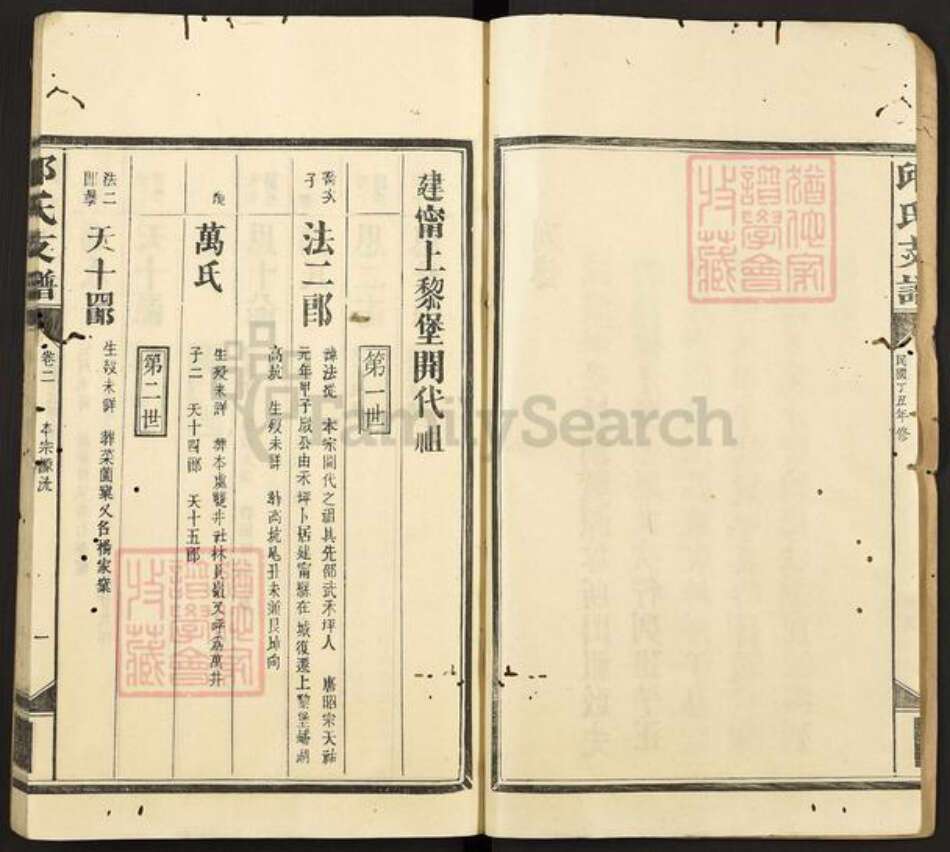 邱氏支譜
民國丁丑年修
猶他家譜學會收藏
建甯上黎堡開代祖
第一世
喬次子
法二郎
諱法從 本宗開代之祖其先邵武禾坪人 唐昭宗天祐
元年甲子歲公由禾坪卜居建甯縣在城復遷上黎堡
高坑 生歿未詳 葬高坑尾
萬氏
生歿未詳 葬本處雙井社林
子二 天十四郎 天十五郎
第二世
法二郎
天十四郎
生歿未詳 葬菜園窠又名楊家窠
猶他家譜學會收藏
邱氏支譜
卷二
本宗源流
一
FamilySearch